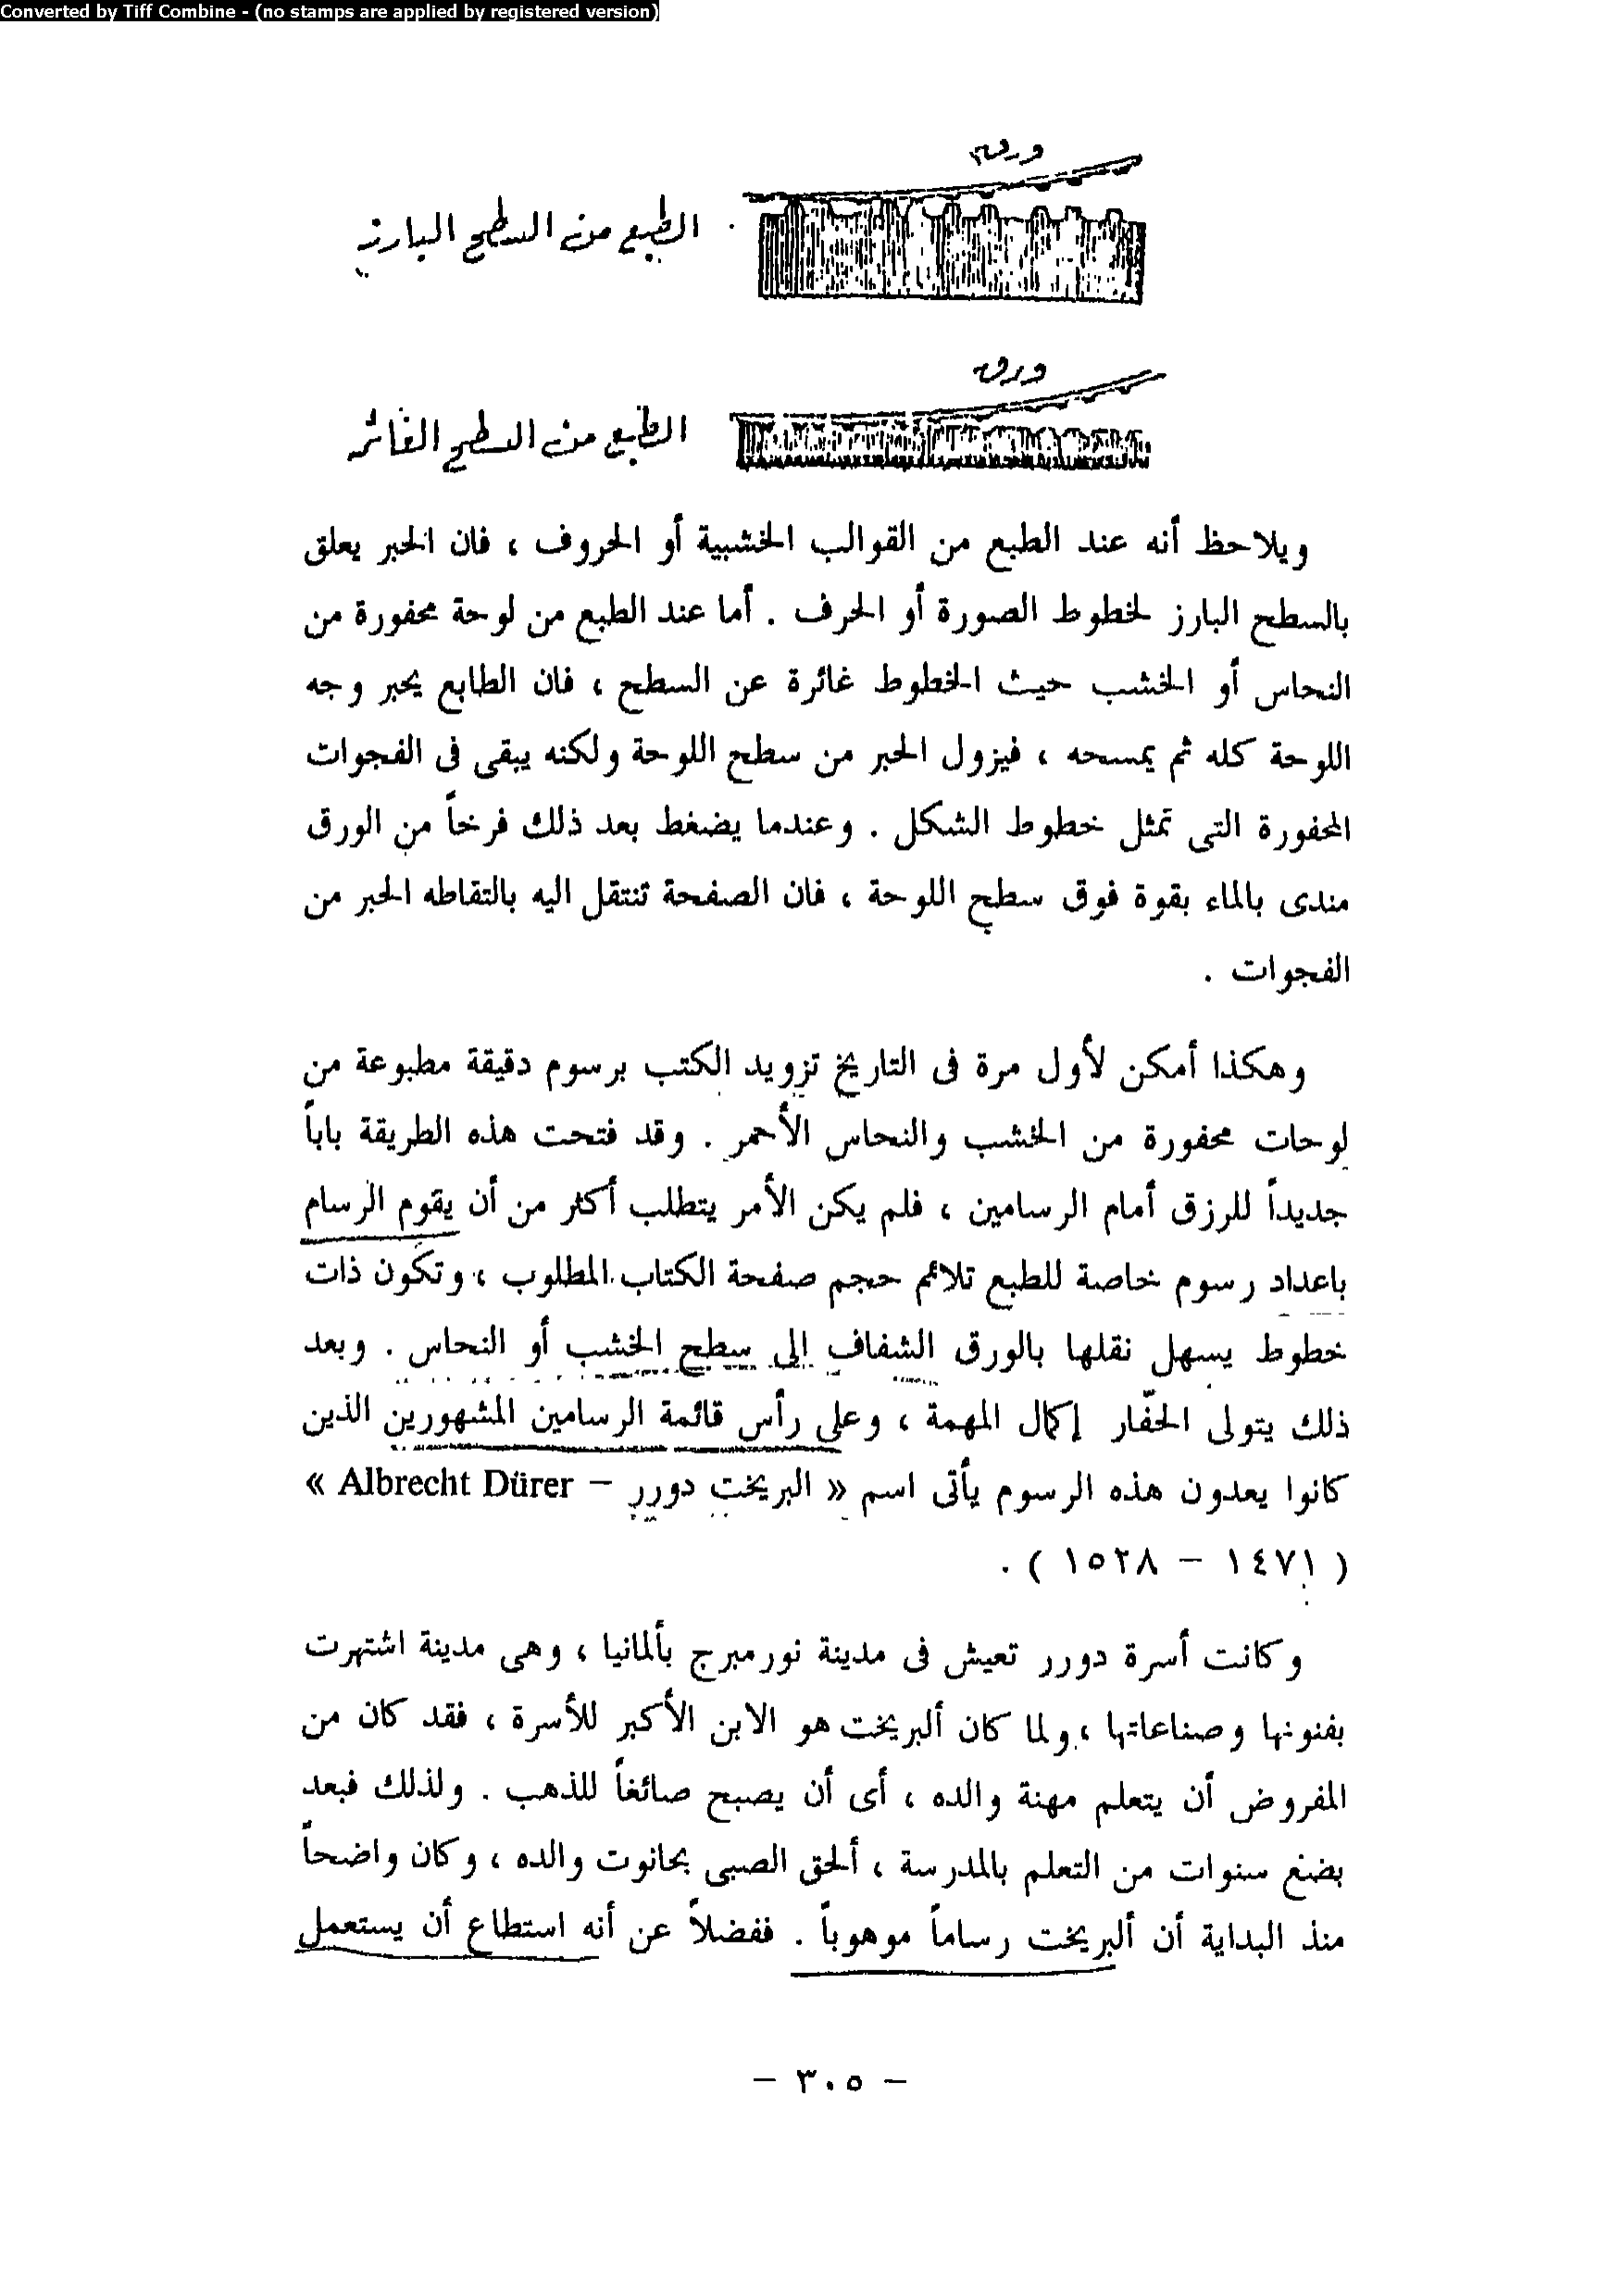 Converted by Tiff Combine - (no stamps are applied by registered version)
ورق
الطبع من السطح البارز
ورق
الطبع من السطح الغائر
ويلاحظ أنه عند الطبع من القوالب الخشبية أو الحروف ، فان الحبر يعلق
بالسطح البارز لخطوط الصورة أو الحرف . أما عند الطبع من لوحة محفورة من
النحاس أو الخشب حيث الخطوط غائرة عن السطح ، فان الطابع يحبر وجه
اللوحة كله ثم يمسحه ، فيزول الحبر من سطح اللوحة ولكنه يبقى فى الفجوات
المحفورة التى تمثل خطوط الشكل . وعندما يضغط بعد ذلك فرخاً من الورق
مندى بالماء بقوة فوق سطح اللوحة ، فان الصفحة تنتقل اليه بالتقاطه الحبر من
الفجوات .
وهكذا أمكن لأول مرة فى التاريخ تزويد الكتب برسوم دقيقة مطبوعة من
لوحات محفورة من الخشب والنحاس الأحمر . وقد فتحت هذه الطريقة باباً
جديداً للرزق أمام الرسامين ، فلم يكن الأمر يتطلب أكثر من أن يقوم الرسام
باعداد رسوم خاصة للطبع تلائم حجم صفحة الكتاب المطلوب ، وتكون ذات
خطوط يسهل نقلها بالورق الشفاف إلى سطح الخشب أو النحاس . وبعد
ذلك يتولى الحفّار إكمال المهمة ، وعلى رأس قائمة الرسامين المشهورين الذين
كانوا يعدون هذه الرسوم يأتى اسم « البريخت دورر – Albrecht Dürer »
( ١٤٧١ – ١٥٢٨ ) .
وكانت أسرة دورر تعيش فى مدينة نورمبرج بألمانيا ، وهى مدينة اشتهرت
بفنونها وصناعاتها ، ولما كان ألبريخت هو الابن الأكبر للأسرة ، فقد كان من
المفروض أن يتعلم مهنة والده ، أى أن يصبح صائغاً للذهب . ولذلك فبعد
بضع سنوات من التعلم بالمدرسة ، ألحق الصبى بحانوت والده ، وكان واضحاً
منذ البداية أن ألبريخت رساماً موهوباً . ففضلاً عن أنه استطاع أن يستعمل
– ٣٠٥ –